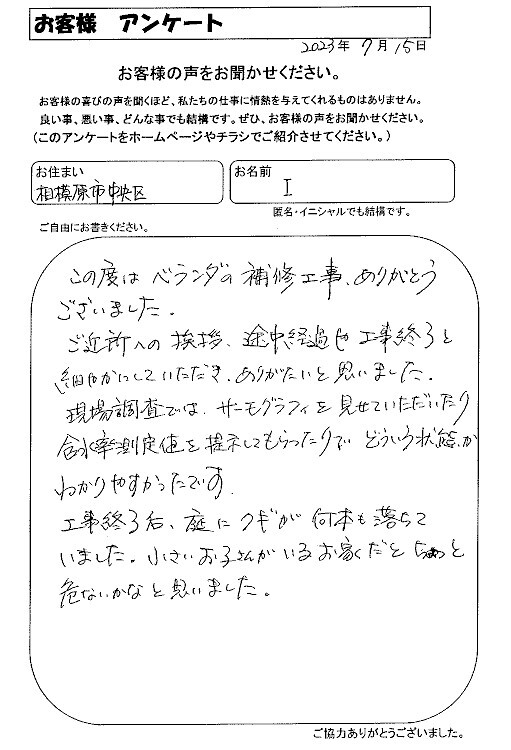 お客様 アンケート
2023年 7月 15日
お客様の声をお聞かせください。
お客様の喜びの声を聞くほど、私たちの仕事に情熱を与えてくれるものはありません。
良い事、悪い事、どんな事でも結構です。ぜひ、お客様の声をお聞かせください。
（このアンケートをホームページやチラシでご紹介させてください。）
お住まい
相模原市中央区
お名前
I
匿名・イニシャルでも結構です。
ご自由にお書きください。
この度は ベランダの 補修工事、ありがとう
ございました。
ご近所への 挨拶、途中経過や 工事終了と
細やかにしていただき、ありがたいと思いました。
現場調査では、サーモグラフィを見せていただいたり
含水率測定値を提示してもらったりで どういう状態か
わかりやすかったです。
工事終了后、庭に クギが 何本も落ちて
いました。小さいお子さんがいるお家だと ちょっと
危ないかなと思いました。
ご協力ありがとうございました。